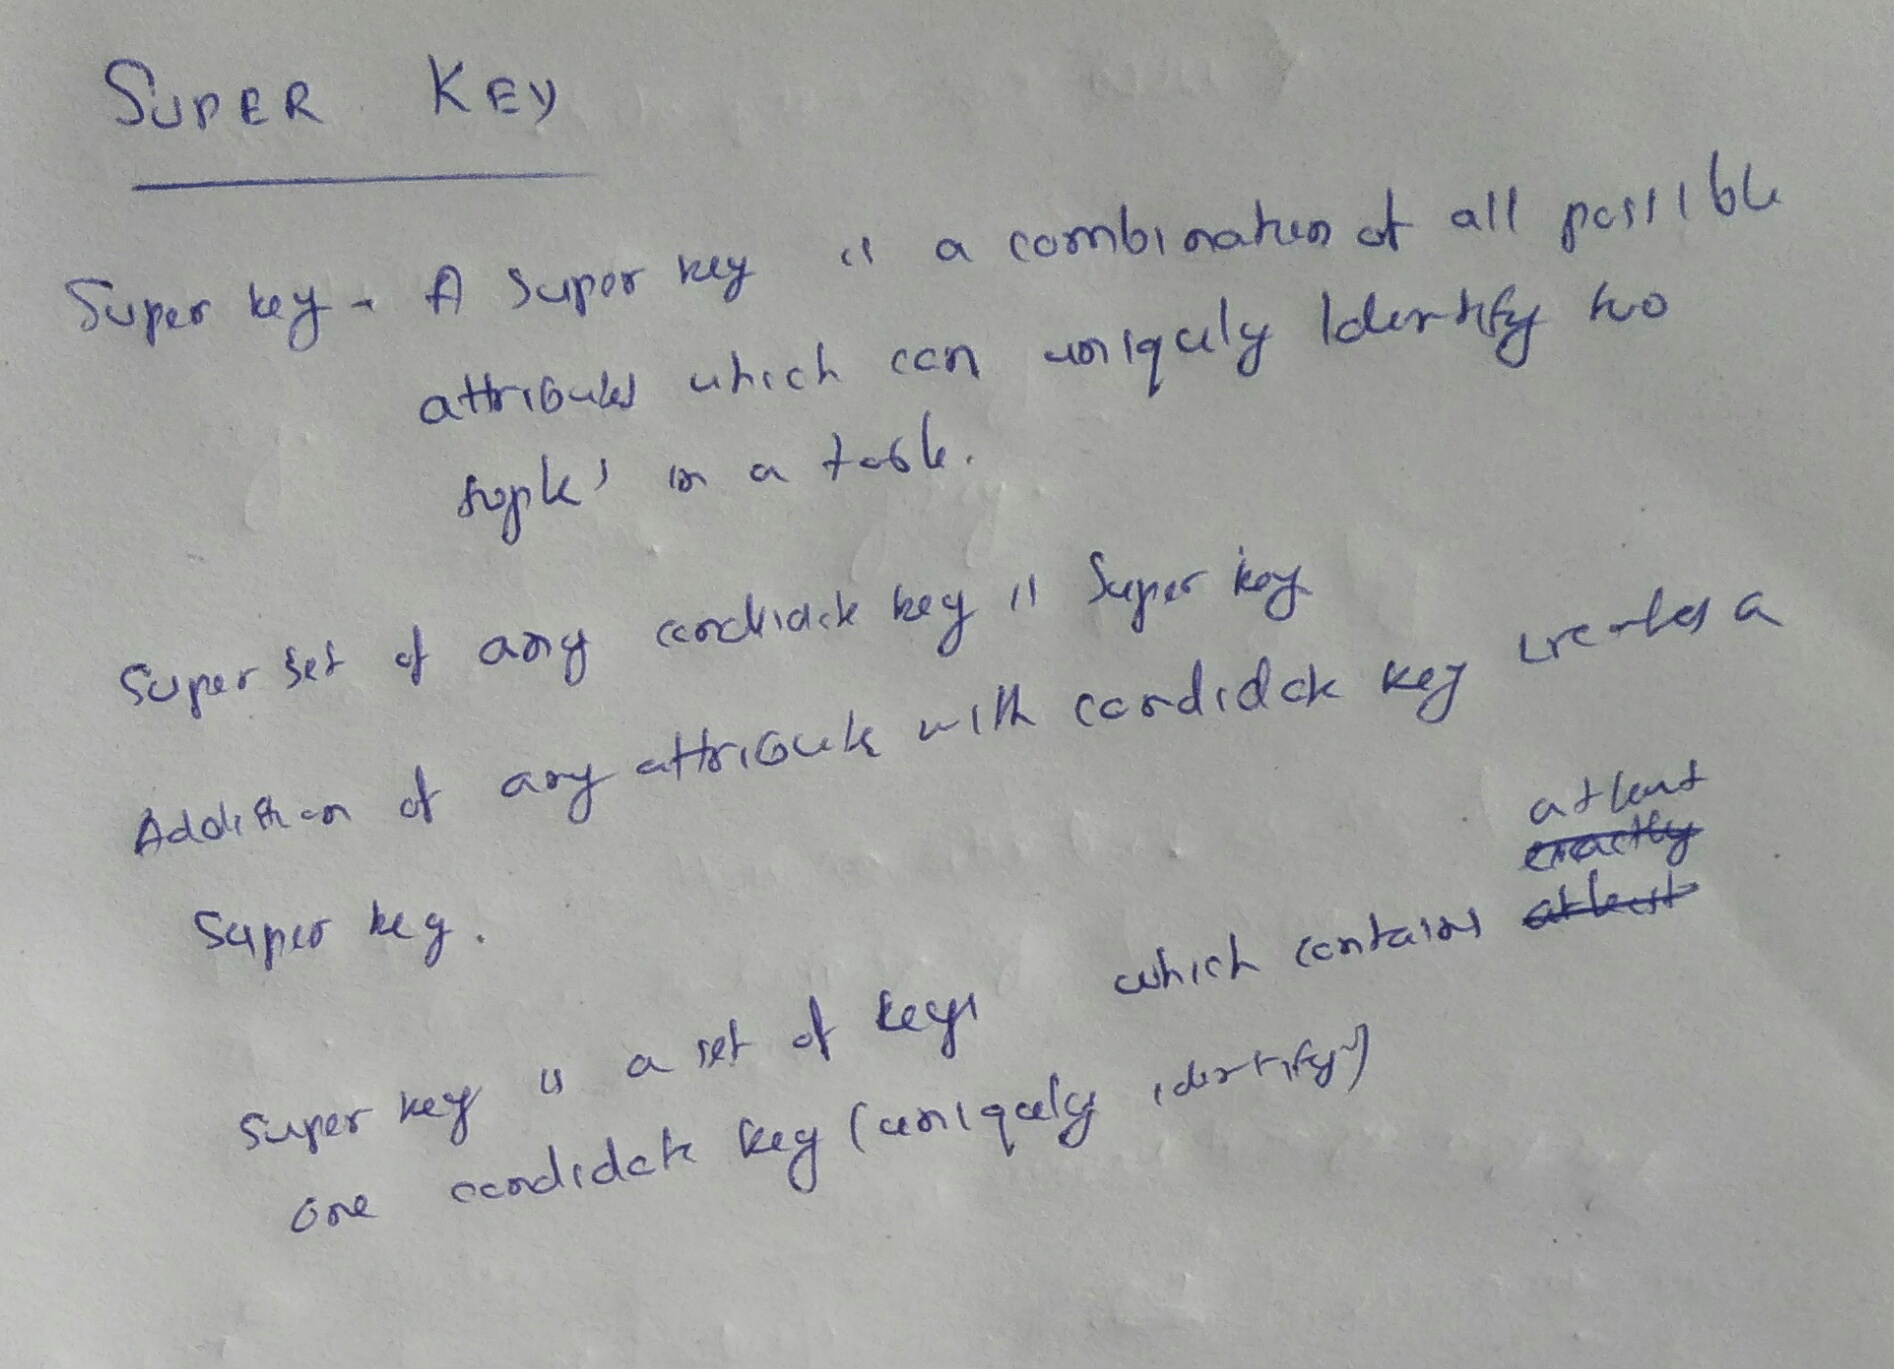 SUPER KEY
Super key - A Super key is a combination of all possible
attributes which can uniquely Identify two
tuples in a table.
Super set of any candidate key is Super key
Addition of any attribute with candidate key creates a
Super key.
atleast
exactly
Super key is a set of keys which contains atleast
one candidate key (uniquely identify)